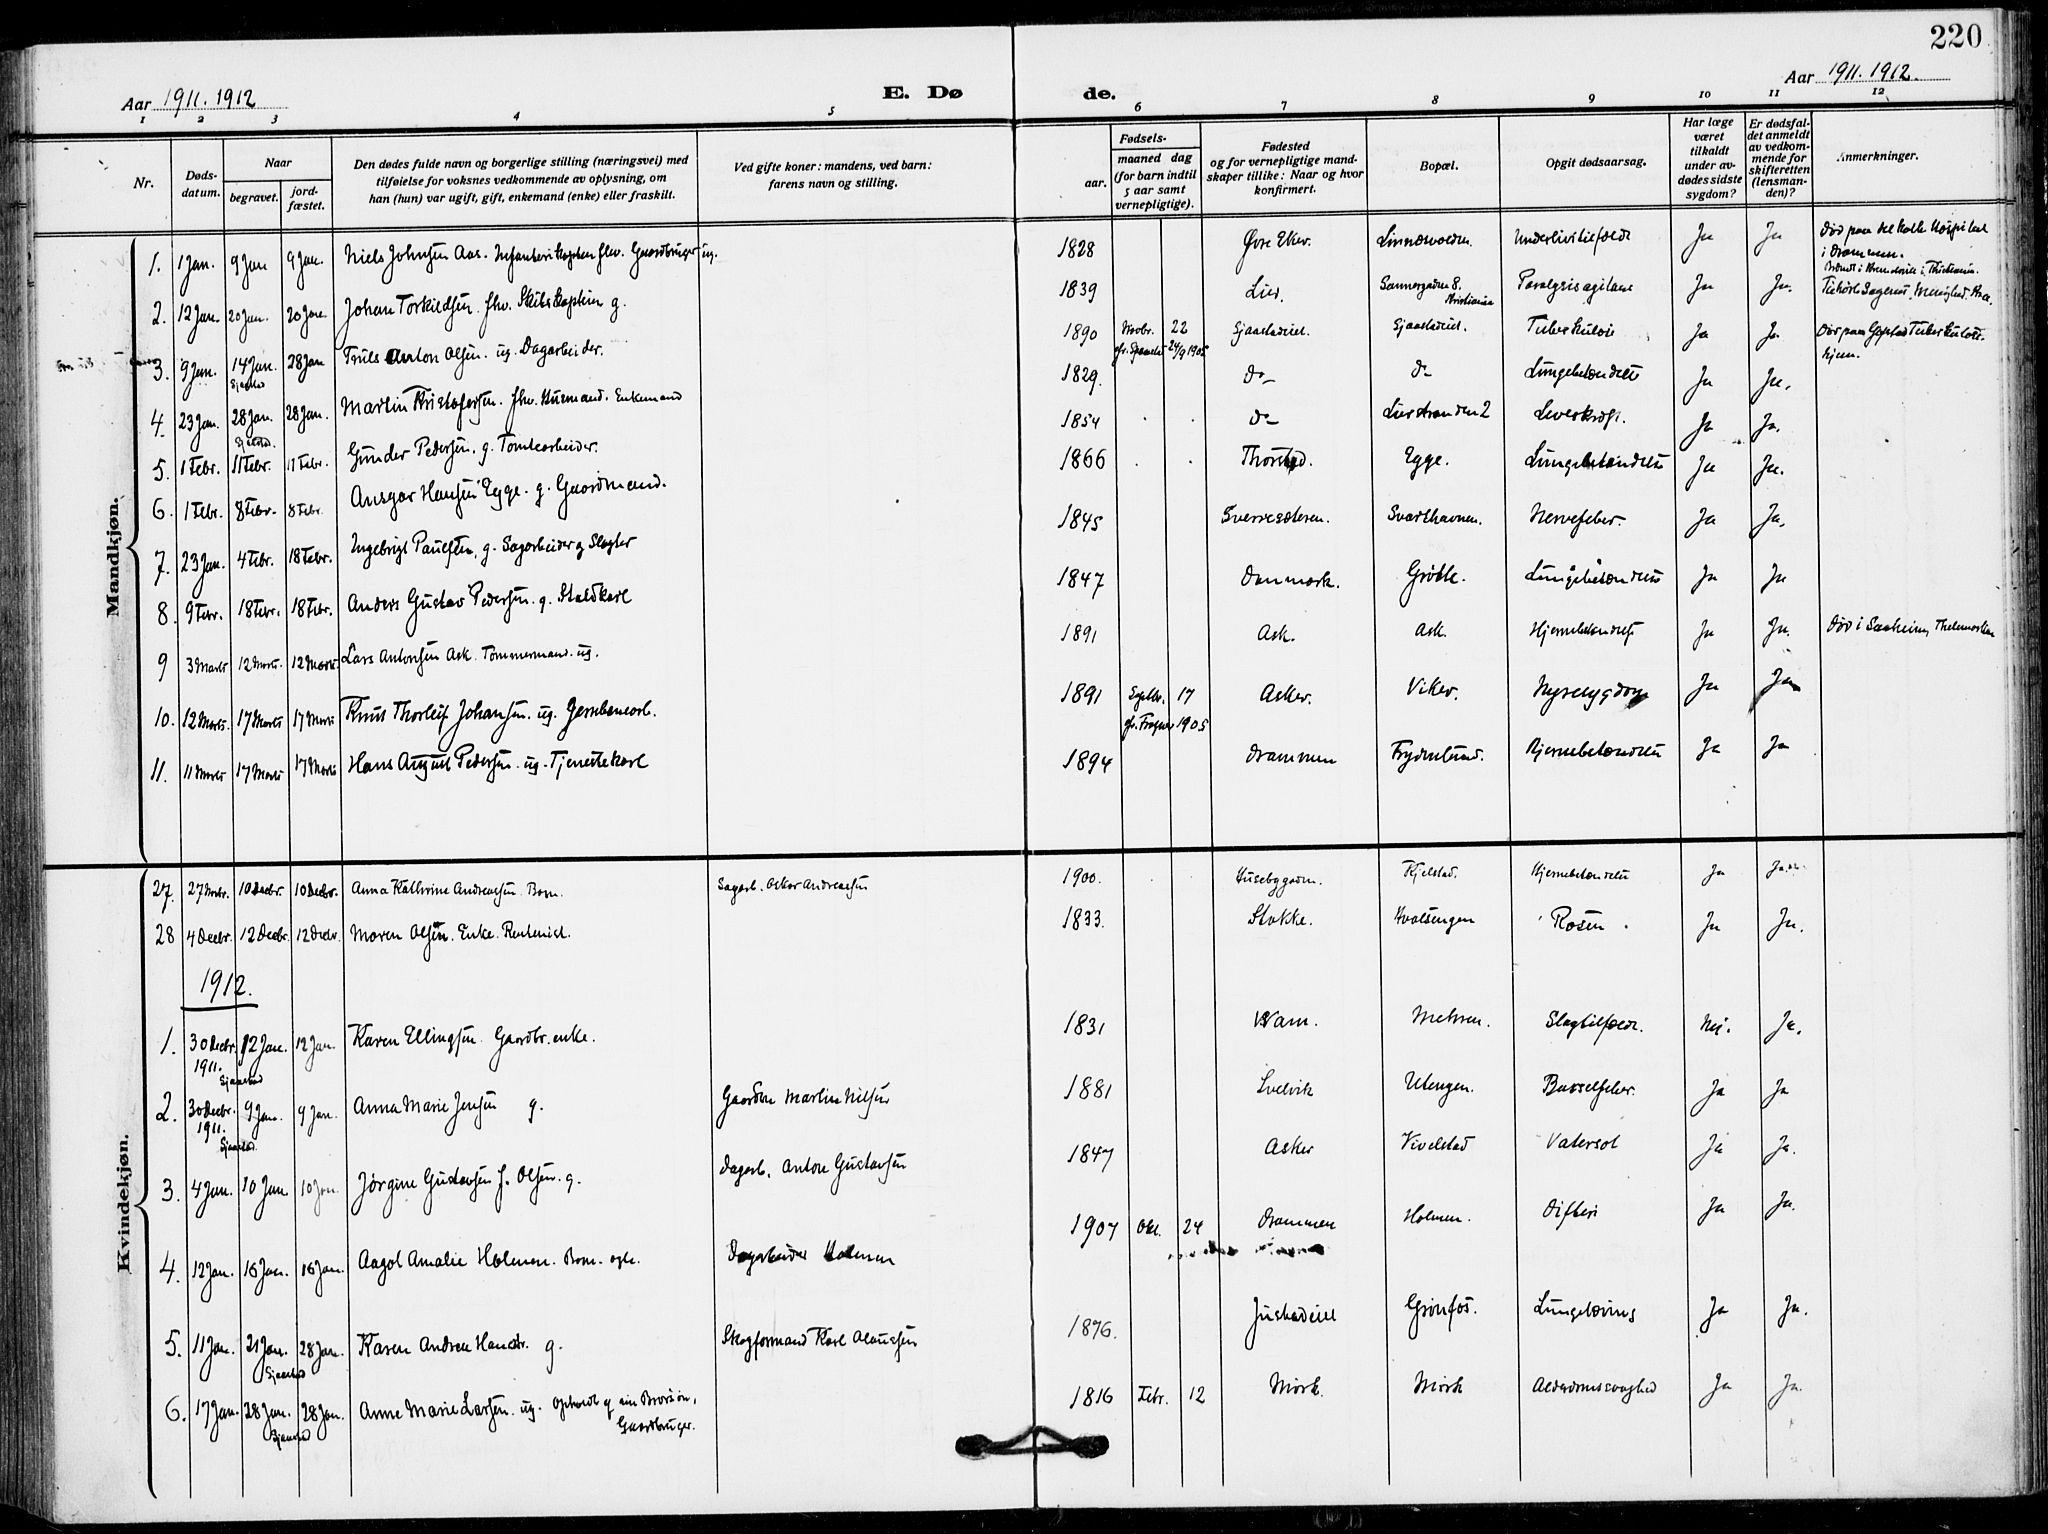 220
Aar 1911. 1912
E. Dø
de.
Aar 1911. 1912.
1 2 3 4 5 6 7 8 9 10 11 12
Nr.
Døds-
datum.
Naar
begravet.
jord-
fæstet.
Den dødes fulde navn og borgerlige stilling (næringsvei) med
tilføielse for voksnes vedkommende av oplysning, om
han (hun) var ugift, gift, enkemand (enke) eller fraskilt.
Ved gifte koner: mandens, ved barn:
farens navn og stilling.
Fødsels-
aar.
maaned dag
(for barn indtil
5 aar samt
vernepligtige).
Fødested
og for vernepligtige mand-
skaper tillike: Naar og hvor
konfirmert.
Bopæl.
Opgit dødsaarsag.
Har læge
været
tilkaldt
under av-
dødes sidste
sygdom?
Er dødsfal-
det anmeldt
av vedkom-
mende for
skifteretten
(lensman-
den)?
Anmerkninger.
Mandkjøn.
1. 1 Jan. 9 Jan 9 Jan. Niels Johnsen Aas. Infanterikaptein fhv. Gaardbruger ug. 1828 Øvre Eker. Linnesvolden. Underlivstilfælde Ja Ja Død paa det kath. Hospital
i Drammen.
2. 12 Jan. 20 Jan. 20 Jan. Johan Torkildsen. fhv. Skibskaptein g. 1839 Lier. Sannergaden 8. Kristiania Paralysis agitans Ja Ja.
3. 9 Jan. 14 Jan. Sjaastad 28 Jan Truls Anton Olsen. ug. Dagarbeider. 1890 Novbr. 22 Sjaastadeiet. Sjaastadeiet. Tuberkulose Ja Ja. Død paa Gjestad Tuberkulose-
hjem.
24/9 1905
4. 23 Jan. 28 Jan. Sjaastad. 28 Jan. Martin Kristofersen. fhv. Husmand. Enkemand 1829. do do Lungebetændelse Ja Ja.
5. 1 Febr. 11 Febr. 11 Febr. Gunder Pedersen. g. Tomtearbeider. 1854 do Lierstranden 2 Leverkræft. Ja Ja.
6. 1 Febr. 8 Febr. 8 Febr. Ansgar Hansen Egge. g. Gaardmand. 1866 Thorstad. Egge. Lungebetændelse Ja Ja.
7. 23 Jan. 4 Febr. 18 Febr. Ingebrigt Paulsen, g. Sagarbeider og Slagter 1845 Sverresæteren. Svarthavnen. Nervefeber. Ja Ja.
8. 9 Febr. 18 Febr. 18 Febr. Anders Gustav Pedersen. g. Staldkarl 1847 Danmark. Grøtte. Lungebetændelse Ja Ja
9 3 Marts 12 Marts. 12 Marts. Lars Antonsen Ask. Tømmermand. ug. 1891 Ask. Ask. Hjernebetændelse Ja Ja. Død i Saaheim, Thelemarken
10. 12 Marts. 17 Marts 17 Marts Knut Thorleif Johansen. ug. Jernbanearb. 1891 Septbr. 17 Asker. Viker. Nyresygdom Ja Ja
1905
11. 11 Marts 17 Marts 17 Marts Hans August Pedersen. ug. Tjenestekarl 1894 Drammen Frydenlund. Hjernebetændelse Ja Ja
Kvindekjøn.
27. 27 Novbr. 10 Decbr. 10 Decbr. Anna Kathrine Andreassen. Barn. Sagarb. Oskar Andreassen 1900. Husebygadn. Kjelstad. Hjernebetændelse Ja Ja.
28 4 Decbr. 12 Decbr. 12 Decbr. Maren Olsen. Enke. Rentenist. 1833. Stokke. Hvalsengen Rosen. Ja Ja.
1912.
1. 30 Decbr. 1911. 12 Jan. 12 Jan. Karen Ellingsen Gaardbr.enke. 1831 Vram. Mehren. Slagtilfælde. Nei. Ja.
2. 30 Decbr. 1911. Sjaastad 9 Jan. 9 Jan. Anna Marie Jensen g. Gaardbr. Martin Nilsen 1881 Svelvik Utengen. Barselfeber. Ja Ja
3. 4 Jan. Sjaastad. 10 Jan 10 Jan. Jørgine Gustavsen f. Olsen. g. Dagarb. Anton Gustavsen 1847 Asker Vivelstad Vatersot Ja Ja.
4. 12 Jan. 16 Jan. 16 Jan. Aagot Amalie Holmen. Barn. egte. Dagarbeider Holmen 1907 Okt. 24 Drammen Holmen. Difteri Ja Ja.
5. 11 Jan. 21 Jan. Sjaastad 28 Jan. Karen Andrea Hansdr. g. Skogformand Karl Olaussen 1876. Justadeiet Grønfos. Lungetæring Ja Ja.
6. 17 Jan. 28 Jan. Sjaastad 28 Jan. Anne Marie Larsen. ug. opholdt af sin Brorsøn,
Gaardbruger. 1816 Febr. 12 Mørk. Mørk Alderdomssvaghed Ja Ja.